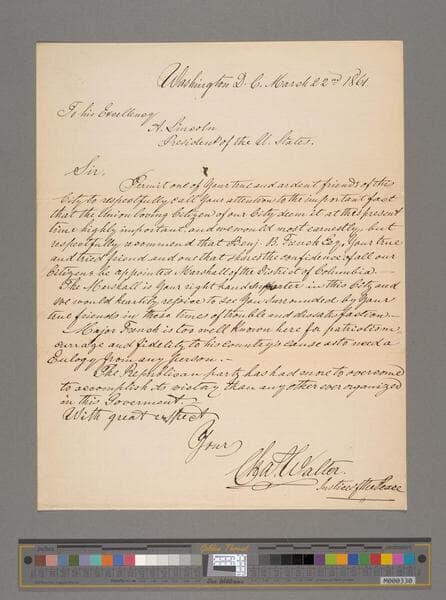 Washington D. C. March 22nd 1861.
To his Excellency
A. Lincoln
President of the U. States.
Sir,
Permit one of your true and ardent friends of the
City to respectfully call your attention to the important fact
that the Union loving Citizens of our City deem it at the present
time highly important, and we would most earnestly, but
respectfully recommend that Benj. B. French Esq, Your true
and tried friend and one that shares the confidence of all our
Citizens be appointed Marshall of the District of Columbia.—
The Marshall is Your right hand supporter in this City and
we would heartily rejoice to see You surrounded by Your
true friends in those times of trouble and dissatisfaction.—
Major French is too well known here for patriotism,
currage and fidelity to his country's cause as to need a
Eulogy from any person.—
The Republican party has had more to overcome
to accomplish its victory than any other ever organized
in this Goverment.—
With great respect
Your
Chas. Walter.
Justice of the Peace
Inches
Golden Thread
M000330